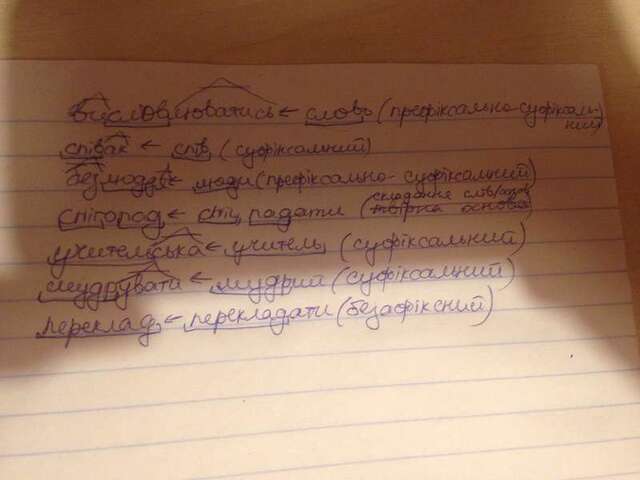 висловлюватись ← слово (префіксально-суфіксаль-
ний)
співак ← спів (суфіксальний)
безлюддя ← люди (префіксально-суфіксальний)
складання слів/основ
снігопад ← сніг, падати (твірна основа)
учительська ← учитель (суфіксальний)
мудрувати ← мудрий (суфіксальний)
переклад ← перекладати (безафіксний)